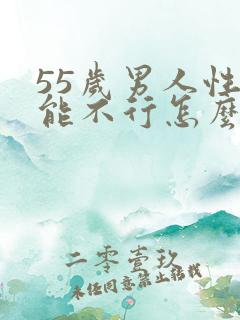 55歲男人性
能不行怎麽
二零壹玖
未任同意禁止轉載